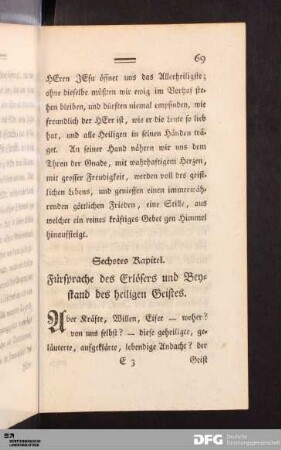 69
HErrn JEsu öffnet uns das Allerheiligste;
ohne dieselbe müßten wir ewig im Vorhof ste-
hen bleiben, und dürften niemal empfinden, wie
freundlich der HErr ist, wie er die Leute so lieb
hat, und alle Heiligen in seinen Händen trä-
get. An seiner Hand nähern wir uns dem
Thron der Gnade, mit wahrhaftigem Herzen,
mit grosser Freudigkeit, werden voll des geist-
lichen Lebens, und geniessen einen immerwäh-
renden göttlichen Frieden, eine Stille, aus
welcher ein reines kräftiges Gebet gen Himmel
hinaufsteigt.
Sechstes Kapitel.
Fürsprache des Erlösers und Bey-
stand des heiligen Geistes.
Aber Kräfte, Willen, Eifer — woher?
von uns selbst? — diese geheiligte, ge-
läuterte, aufgeklärte, lebendige Andacht? der
E 3 Geist
DFG
Deutsche
Forschungsgemeinschaft